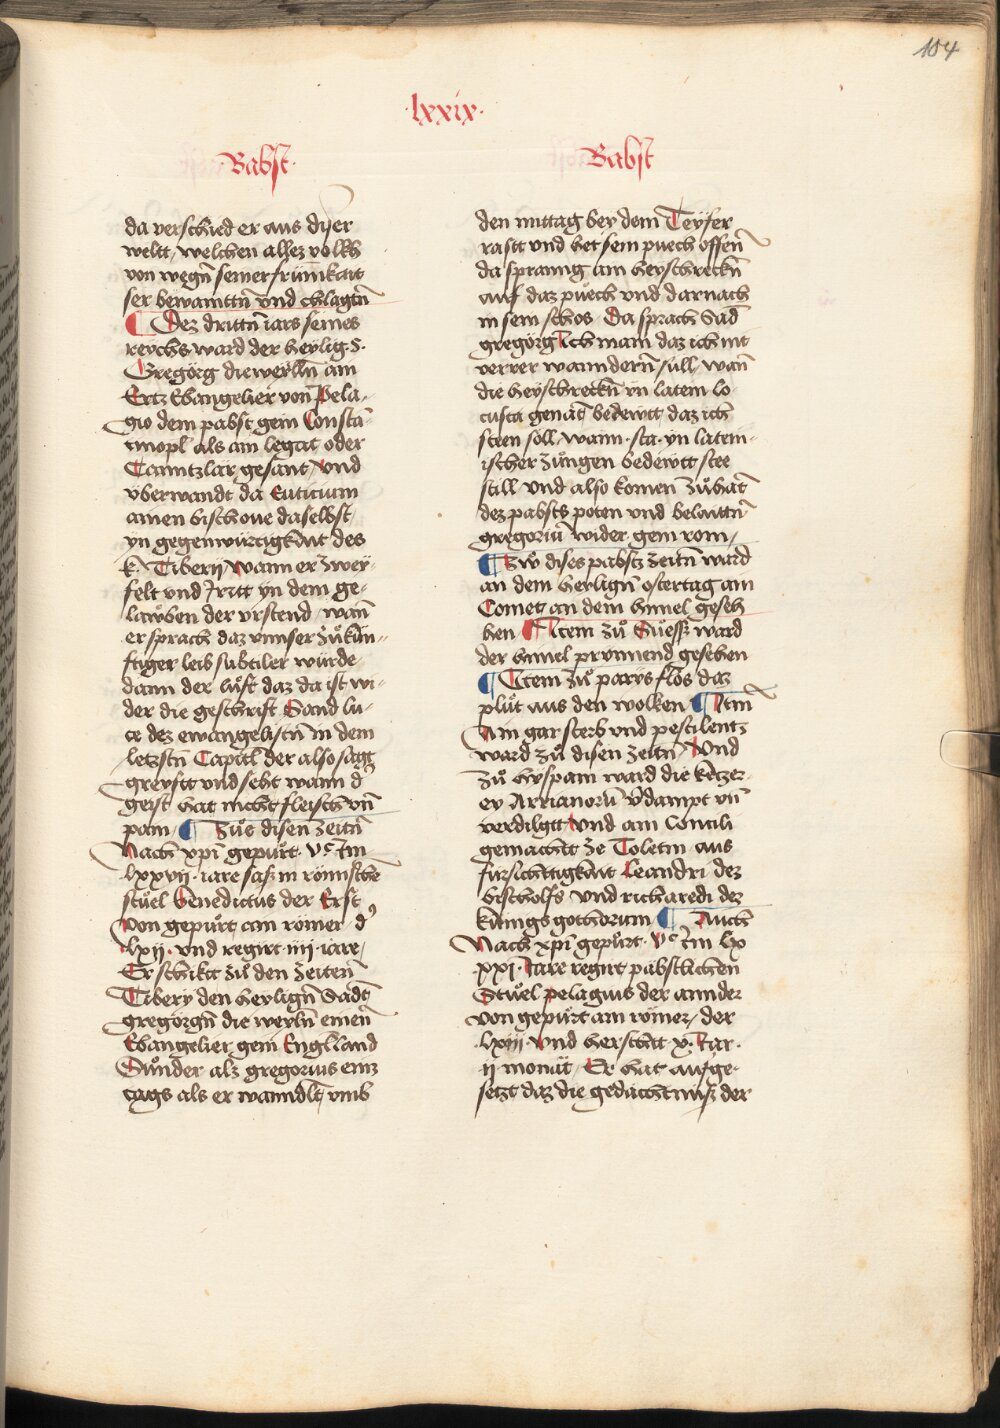 104
·lxxix·
·Babst·
da verschied er aus diser
weltt, welchen allez volkh
von wegn̄ seiner frümkait
ser bewaintn̄ vnd chlagtn̄
¶ Dez drittn̄ iars seines
reychs ward der heylig S.
Gregörg dieweyl̄n am
Ertz Ewangelier von Pela-
gio dem pabst gein Consta-
tinopl als ain legat oder
Canntzlar gesant, vnd
vberwandt da Euticium
ainen bischoue daselbst,
yn gegenwürtigkait des
k. Tiberij wann er zwey-
felt vnd Irrtt yn dem ge-
lawben der vrstend, wan̄
er sprach daz vnnser zůkün-
ftiger leib subtiler würde,
dann der lůft daz da ist wi-
der die geschrift Sand lu-
ce dez ewangelistn̄ in dem
letzstn̄ Capitl der also sagt
greyftt vnd seht wann d'
geist hat nicht fleisch vn̄
pain, ¶ Zůs disen zeitn̄
Nach xpi gepůrt. vᶜ Im
lxxvii. iare sasz in römische
stůel Benedictus der Erst
von gepůrt ain römer d'
lxij. vnd regirt .iiij. iare,
Er schikt zů den zeiten̄
Tibery den heylign̄ Sādt
gregörgn̄ die weyln̄ einen̄
Ewangelier gein Englland
Sůnder alz gregorius eins
tags als er wanndlt, vmb
Babst
den mittag bey dem Teyfer
rastt vnd het sein puech offen̄
da spranng ain heyschreckn̄
auf daz půech vnd darnach
in sein schos. Da sprach Sād
gregörg Ich main daz ich nit
verrer wanndern̄ sull, wan̄
die heyschreckn̄ yn latein lo-
custa genāt bedewtt daz ich
steen soll, wann .sta. yn latein-
ischer zůngen bedewtt stee
still, vnd also komen zůhat̄
dez pabsts poten vnd belaittn̄
gregoriū wider gein rom,
¶ Zů dises pabstz zeitn̄ ward
an dem heylign̄ ostertag ain
Cometz an dem himel geseh
hen ¶ Item zů Sůessz ward
der himel prinnend gesehen
¶ Item zů parys flos daz
plůt aus den wolken ¶ Itm̄
Ain gar sterb vnd pestilentz
ward zů disen zeitn̄, Vnd
zů hyspani ward die ketzer
ey Arrianorū v'dampt vn̄
verdilgtt vnd ain Concili
gemachtt ze Toletm aus
fürsichttigkait Leandri dez
bischolfs vnd richaredi dez
künigs gothorum ¶ Auch
Nach xpi gepůrt. vᶜ Im lx
xxi. Iare regirt päbstlichen
Stůel pelagius der annder
von gepůrt ain römer, der
.lxiij. vnd herschtt x. Iar.
ij monāt, Er hat aufge-
setzt daz die gedächtnusz der